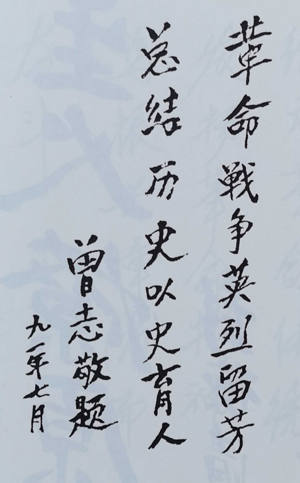 革命戰争英烈留芳
总结历史以史育人
曾志敬题
九一年七月